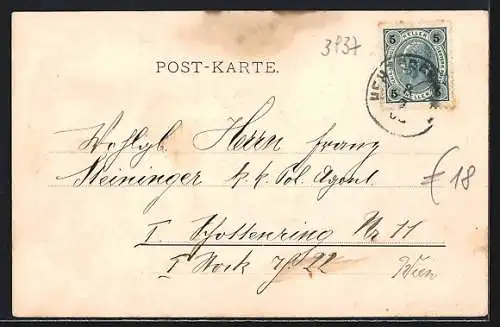 3137
POST-KARTE.
5 HELLER 5
5 HELLER 5
Wohlgb. Herrn Franz
Steininger k. k. Pol. Agent
I. Schottenring Nr 11
I Stock 22
Wien
€ 18